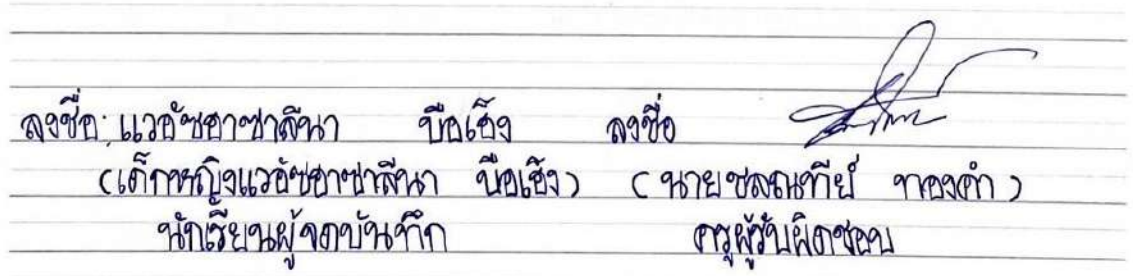 ลงชื่อ แวอัซฮาซาลีนา บือเฮ็ง ลงชื่อ
(เด็กหญิงแวอัซฮาซาลีนา บือเฮ็ง) (นายชลณทีย์ ทองคำ)
นักเรียนผู้จดบันทึก ครูผู้รับผิดชอบ